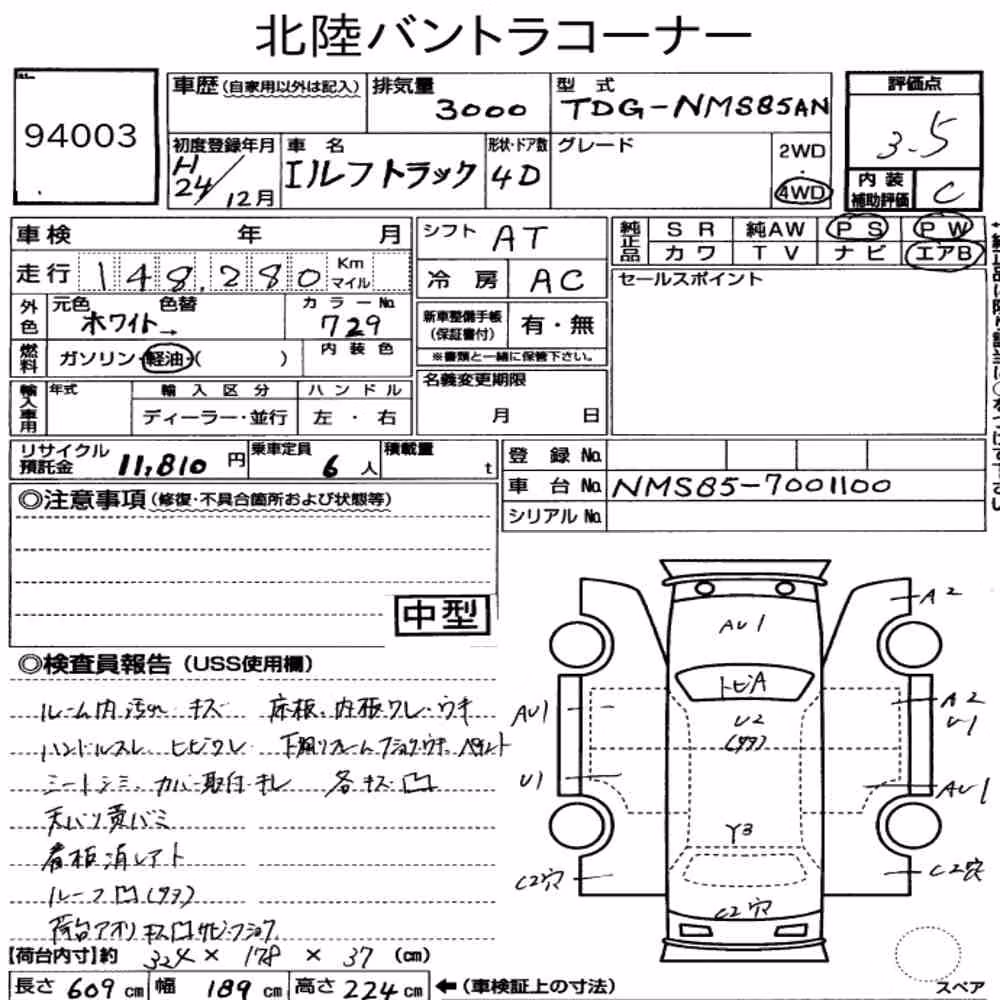 北陸バントラコーナー
94003
車歴(自家用以外は記入)
排気量
3000
型式
TDG-NMS85AN
評価点
3.5
初度登録年月
H24/12月
車名
エルフトラック
形状・ドア数
4D
グレード
2WD
4WD
内装補助評価
C
車検 年 月
シフト AT
純正品
SR 純AW PS PW
カワ TV ナビ エアB
走行 148,280 Km マイル
冷房 AC
セールスポイント
外色
元色 色替
ホワイト→
カラーNo.
729
新車整備手帳(保証書付)
有・無
※書類と一緒に保管下さい。
燃料
ガソリン・軽油・( )
内装色
名義変更期限
月 日
輸入車用
年式
輸入区分
ディーラー・並行
ハンドル
左・右
リサイクル預託金 11,810円
乗車定員 6人
積載量 t
登録No.
車台No. NMS85-7001100
シリアルNo.
◎注意事項(修復・不具合箇所および状態等)
中型
◎検査員報告(USS使用欄)
ルーム内汚れ キズ
床板、内板ワレ・ウキ
ハンドルスレ ヒビワレ
シートシミ、カバー取付 キレ
各キズ・凹
天バリ黄バミ
看板消しアト
ルーフ凹(タヲ)
荷台アオリ キズ凹サビ・フショク
【荷台内寸】約 324 × 178 × 37 (cm)
長さ 609cm 幅 189cm 高さ 224cm ←(車検証上の寸法)
AU1
トビA
U2
(タヲ)
Y3
C2穴
AU1
U1
C2穴
A2
A2
U1
AU1
C2穴
スペア